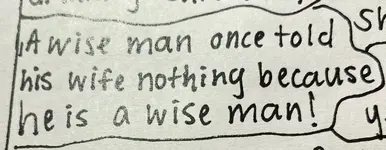 A wise man once told
his wife nothing because
he is a wise man!